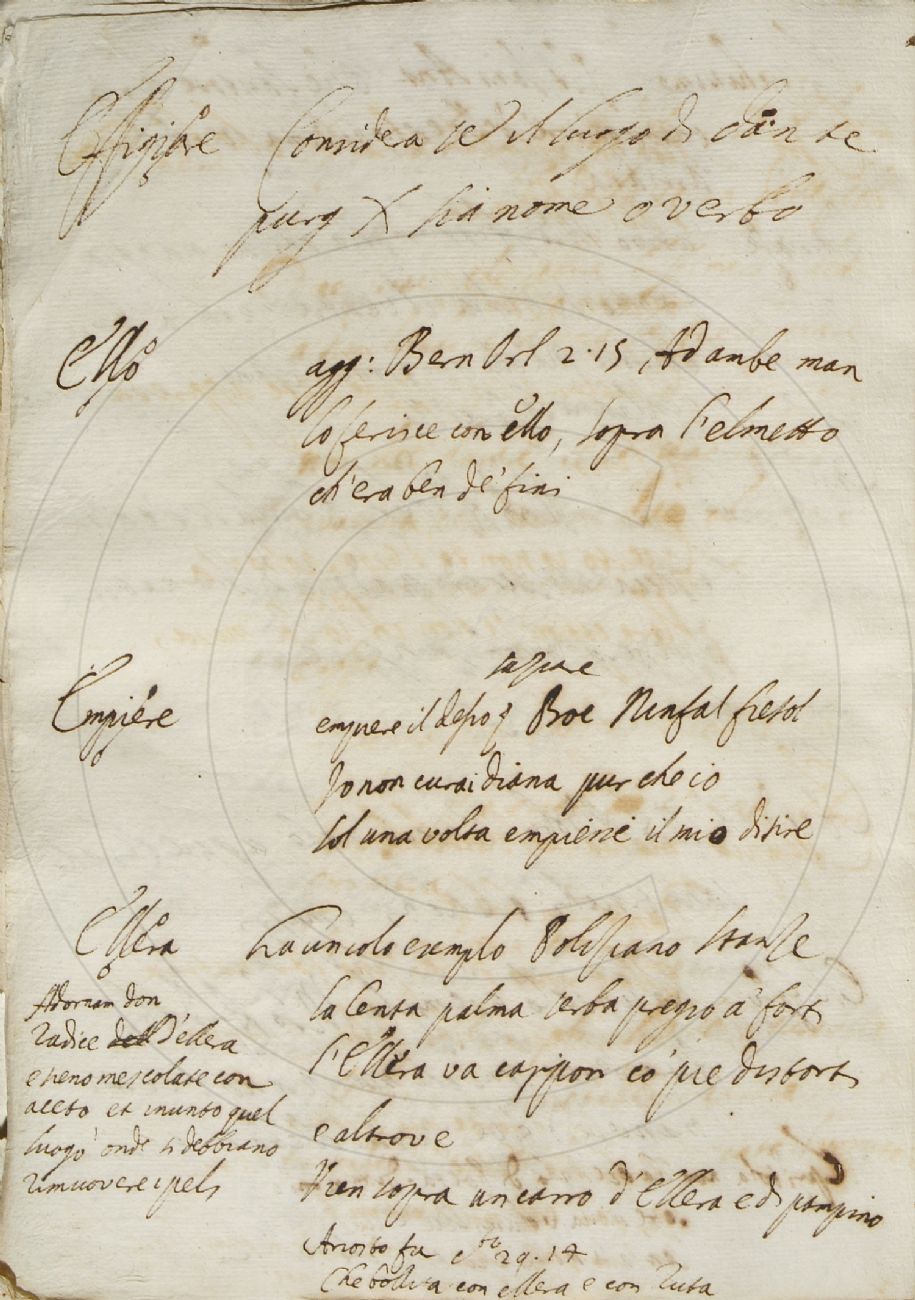 Effigiare Considera se il luogo di Dante
purg X sia nome o verbo
Ello agg: Bern Orl 2.15, Ad ambe man
lo ferisce con ello, sopra l'elmetto
ch'era ben de' fini
Empiére
saziare
empiere il desio Boc Ninfal fiesol
Io non curai diana pur che io
sol una volta empiessi il mio disire
Ellera ha un solo exemplo Poliziano stanze
la lenta palma serba pregio a' forti
l'Ellera va carpon co' pie distorti
e altrove
Vien sopra un carro d'Ellera e di pampino
Ariosto fu 29.14
Che bolliva con ellera e con ruta
Adornam don
radice d'ellera
mescolate con
aceto et inunto quel
luogo onde si debbiano
rimuovere i peli